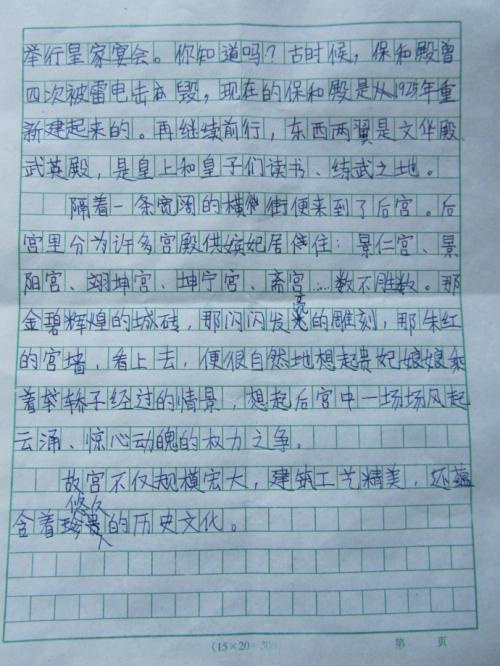 举行皇家宴会。你知道吗？古时候，保和殿曾
四次被雷电击毁，现在的保和殿是从1925年重
新建起来的。再继续前行，东西两翼是文华殿
武英殿，是皇上和皇子们读书、练武之地。
隔着一条宽阔的横街便来到了后宫。后
宫里分为许多宫殿供嫔妃居住：景仁宫、景
阳宫、翊坤宫、坤宁宫、斋宫……数不胜数。那
金碧辉煌的城砖，那闪闪发亮的雕刻，那朱红
的宫墙，看上去，便很自然地想起贵妃娘娘乘
着轿子经过的情景，想起后宫中一场场风起
云涌、惊心动魄的权力之争。
故宫不仅规模宏大，建筑工艺精美，还蕴
含着悠久的历史文化。
(15×20=300)
第 页